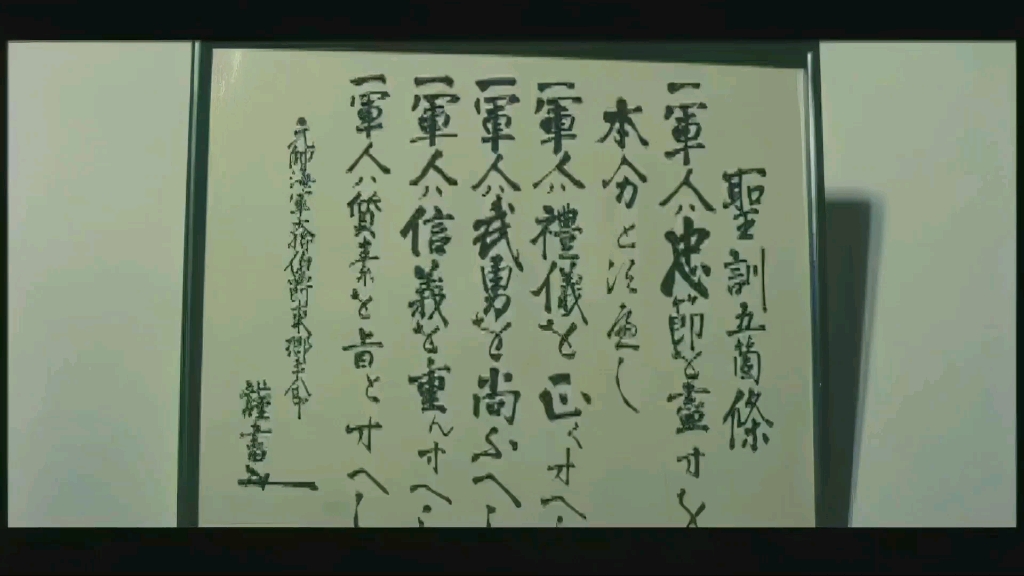 聖訓五箇條
一軍人ハ忠節を盡すを
本分とすへし
一軍人ハ禮儀を正くすへ
一軍人ハ武勇を尚ふへし
一軍人ハ信義を重んすへし
一軍人ハ質素を旨とすへし
元帥海軍大将伯爵東郷平八郎
謹書